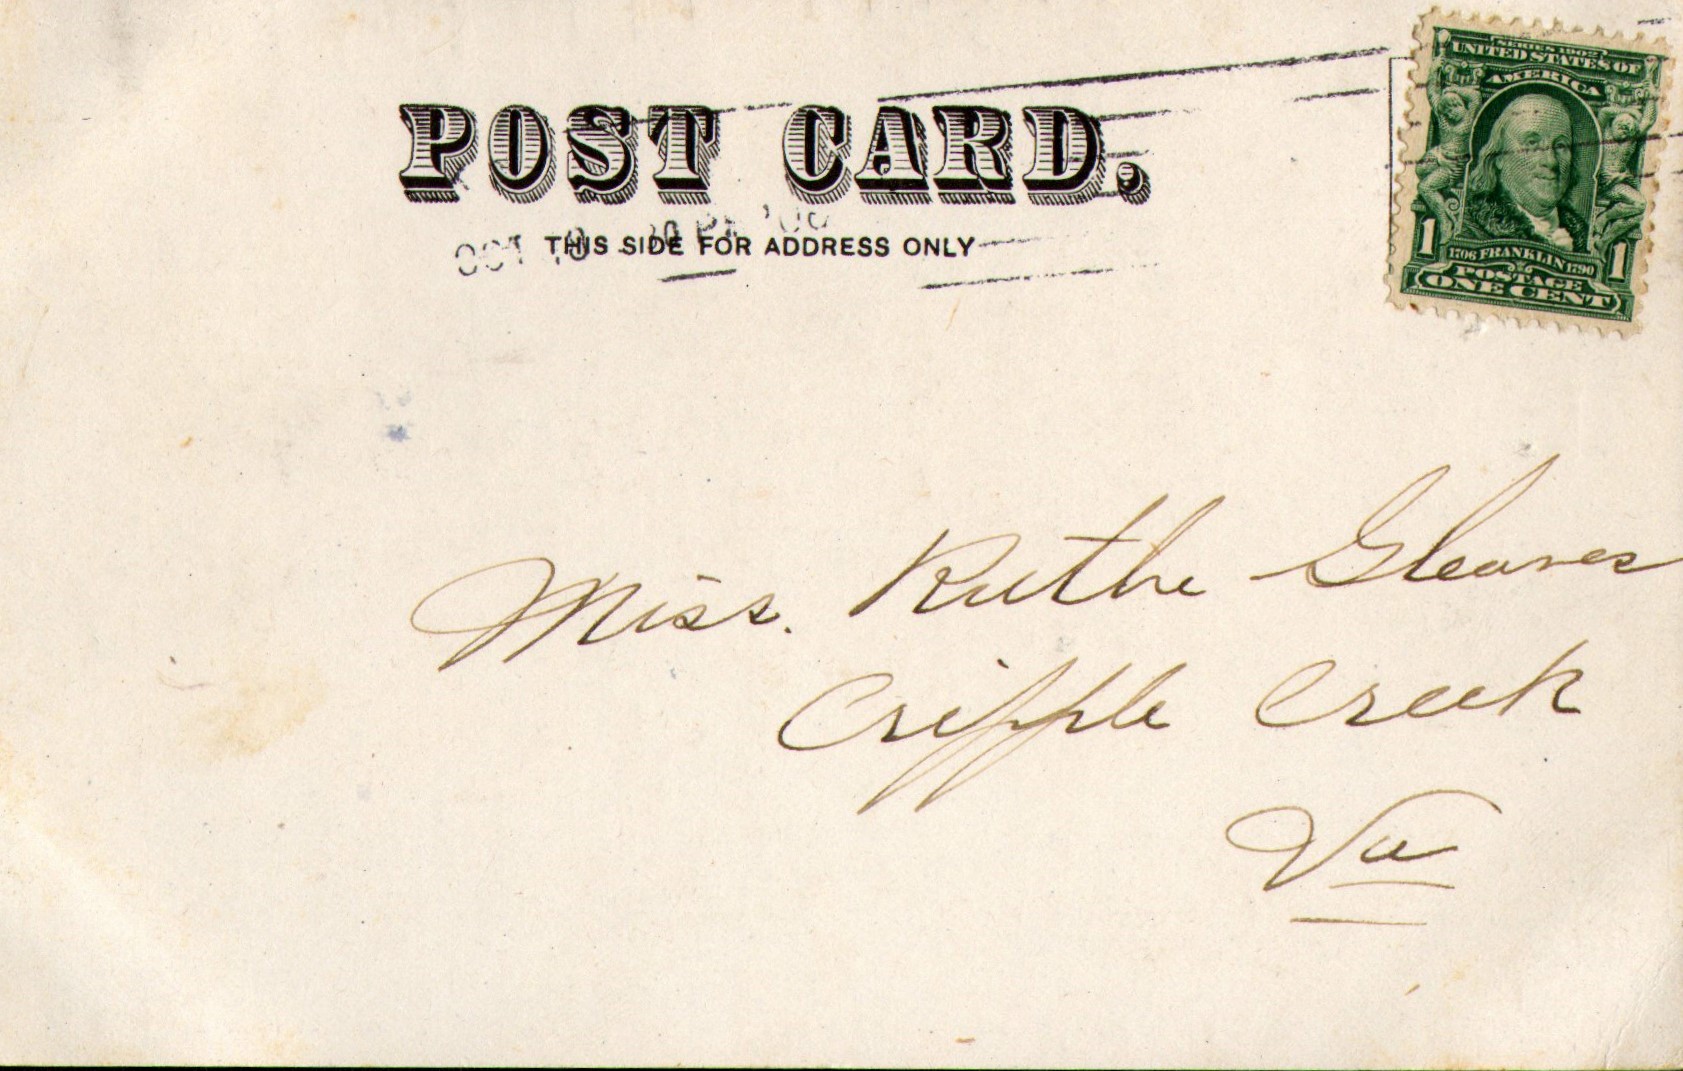 SERIES 1902
UNITED STATES OF
AMERICA
POST CARD.
OCT
THIS SIDE FOR ADDRESS ONLY
1 1706 FRANKLIN 1790 1
POSTAGE
ONE CENT
Miss. Ruthe Gleaves
Cripple Creek
Va